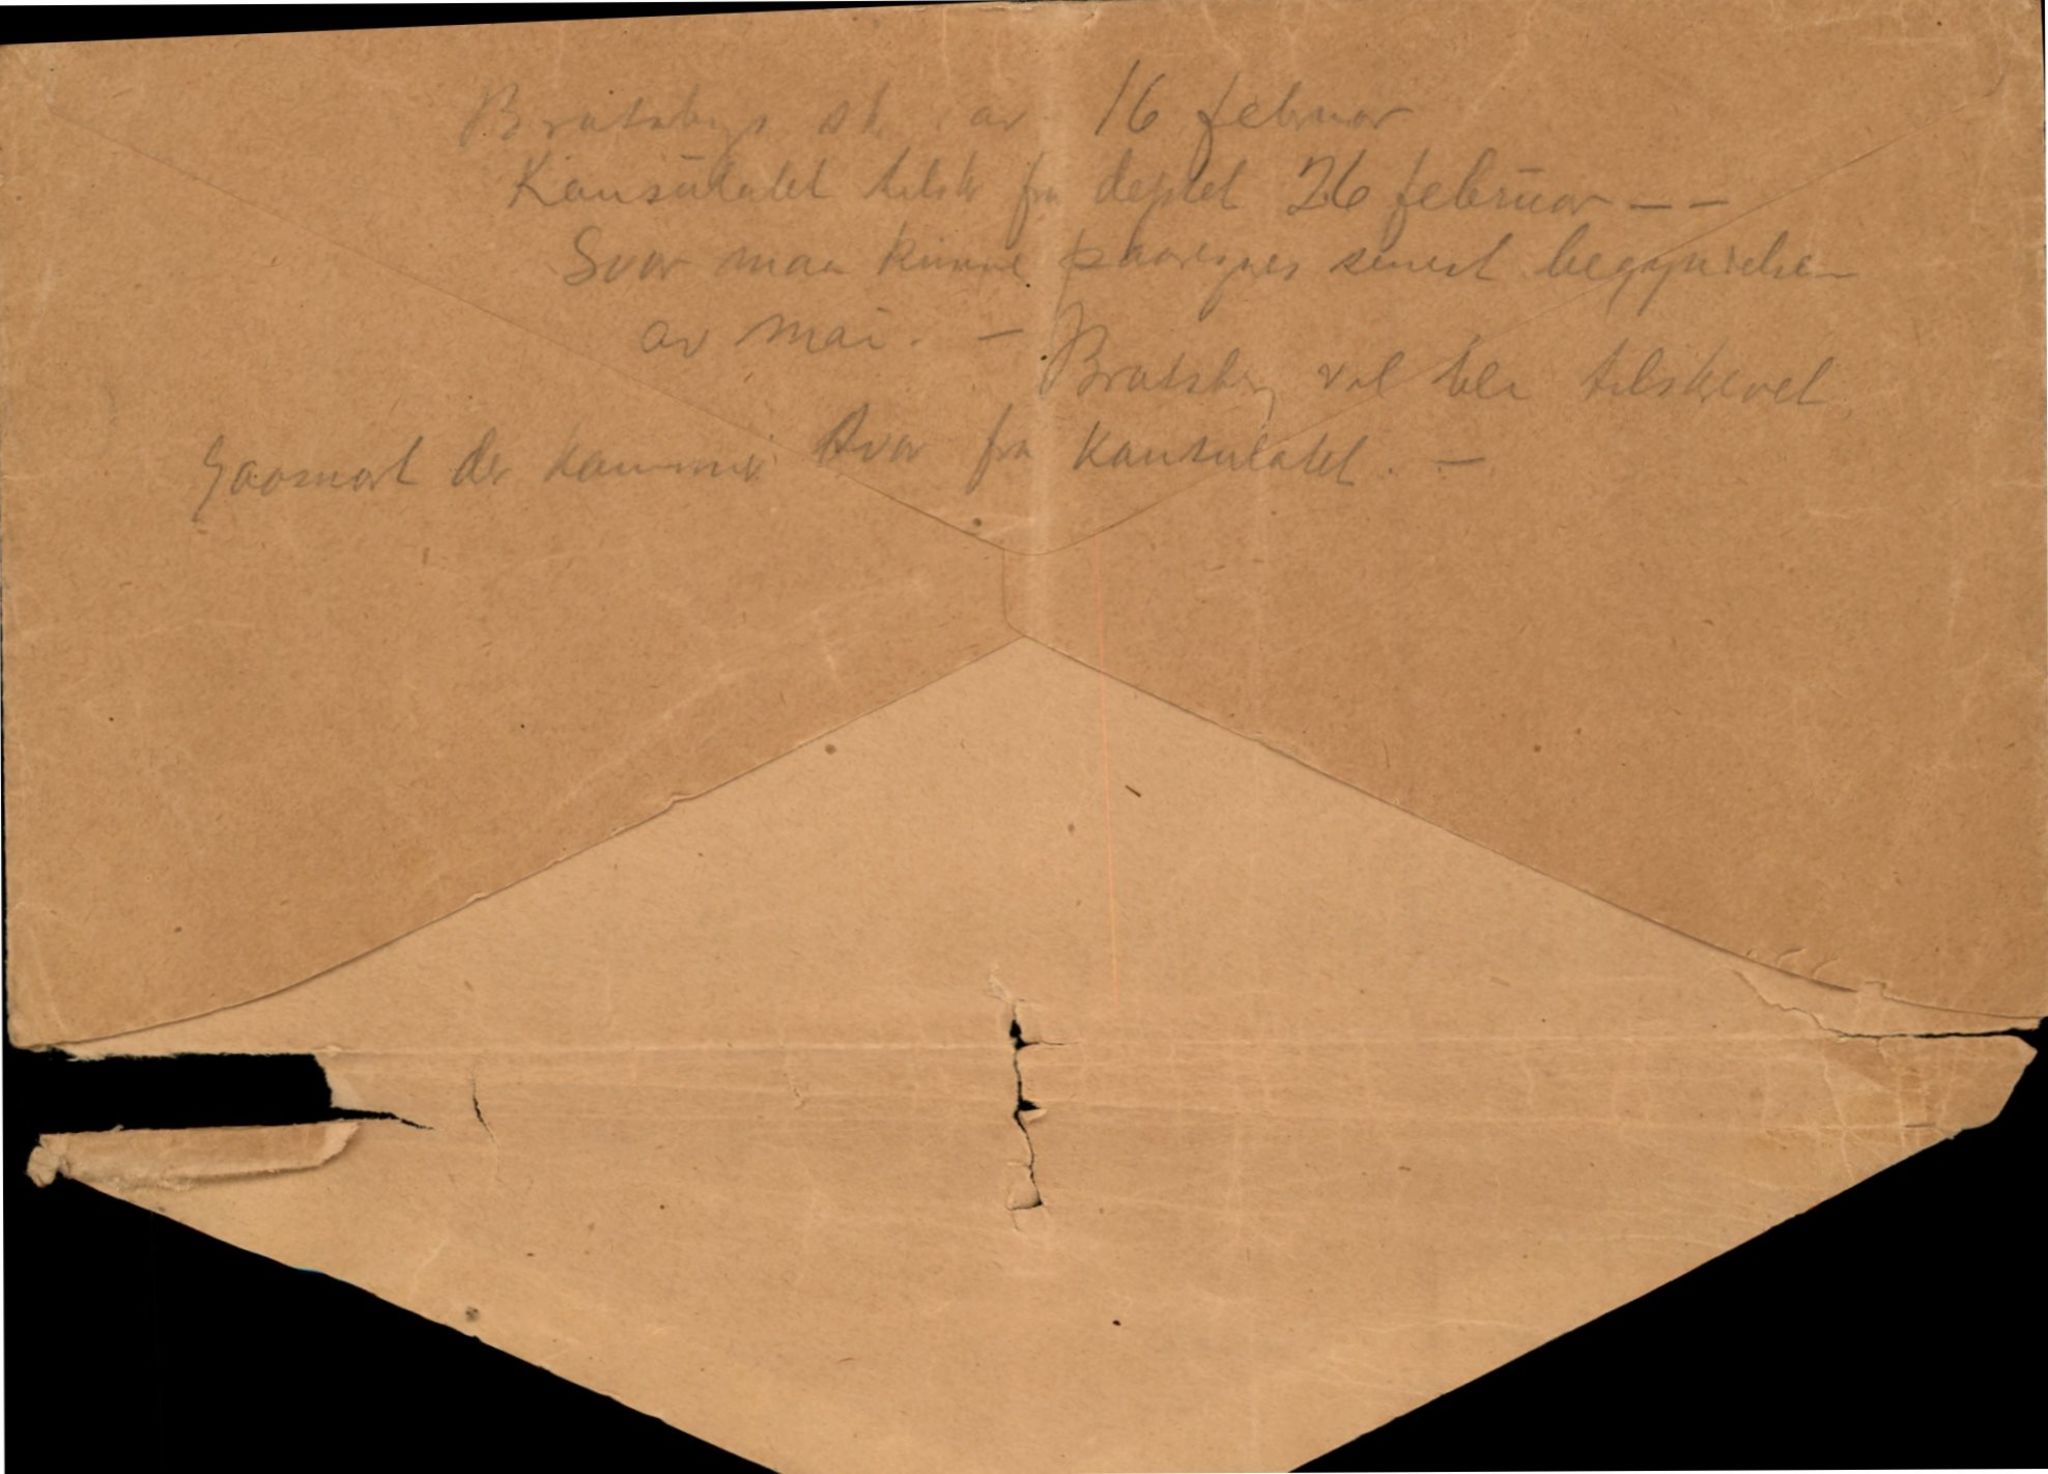 Bratsbergs sk. av 16 februar
Konsulatet tilsk fra deptet 26 februar — —
Svar maa kunne paaregnes senest begynnelsen
av mai. — Bratsberg vil bli tilskrevet
saasnart der kommer svar fra konsulatet. —